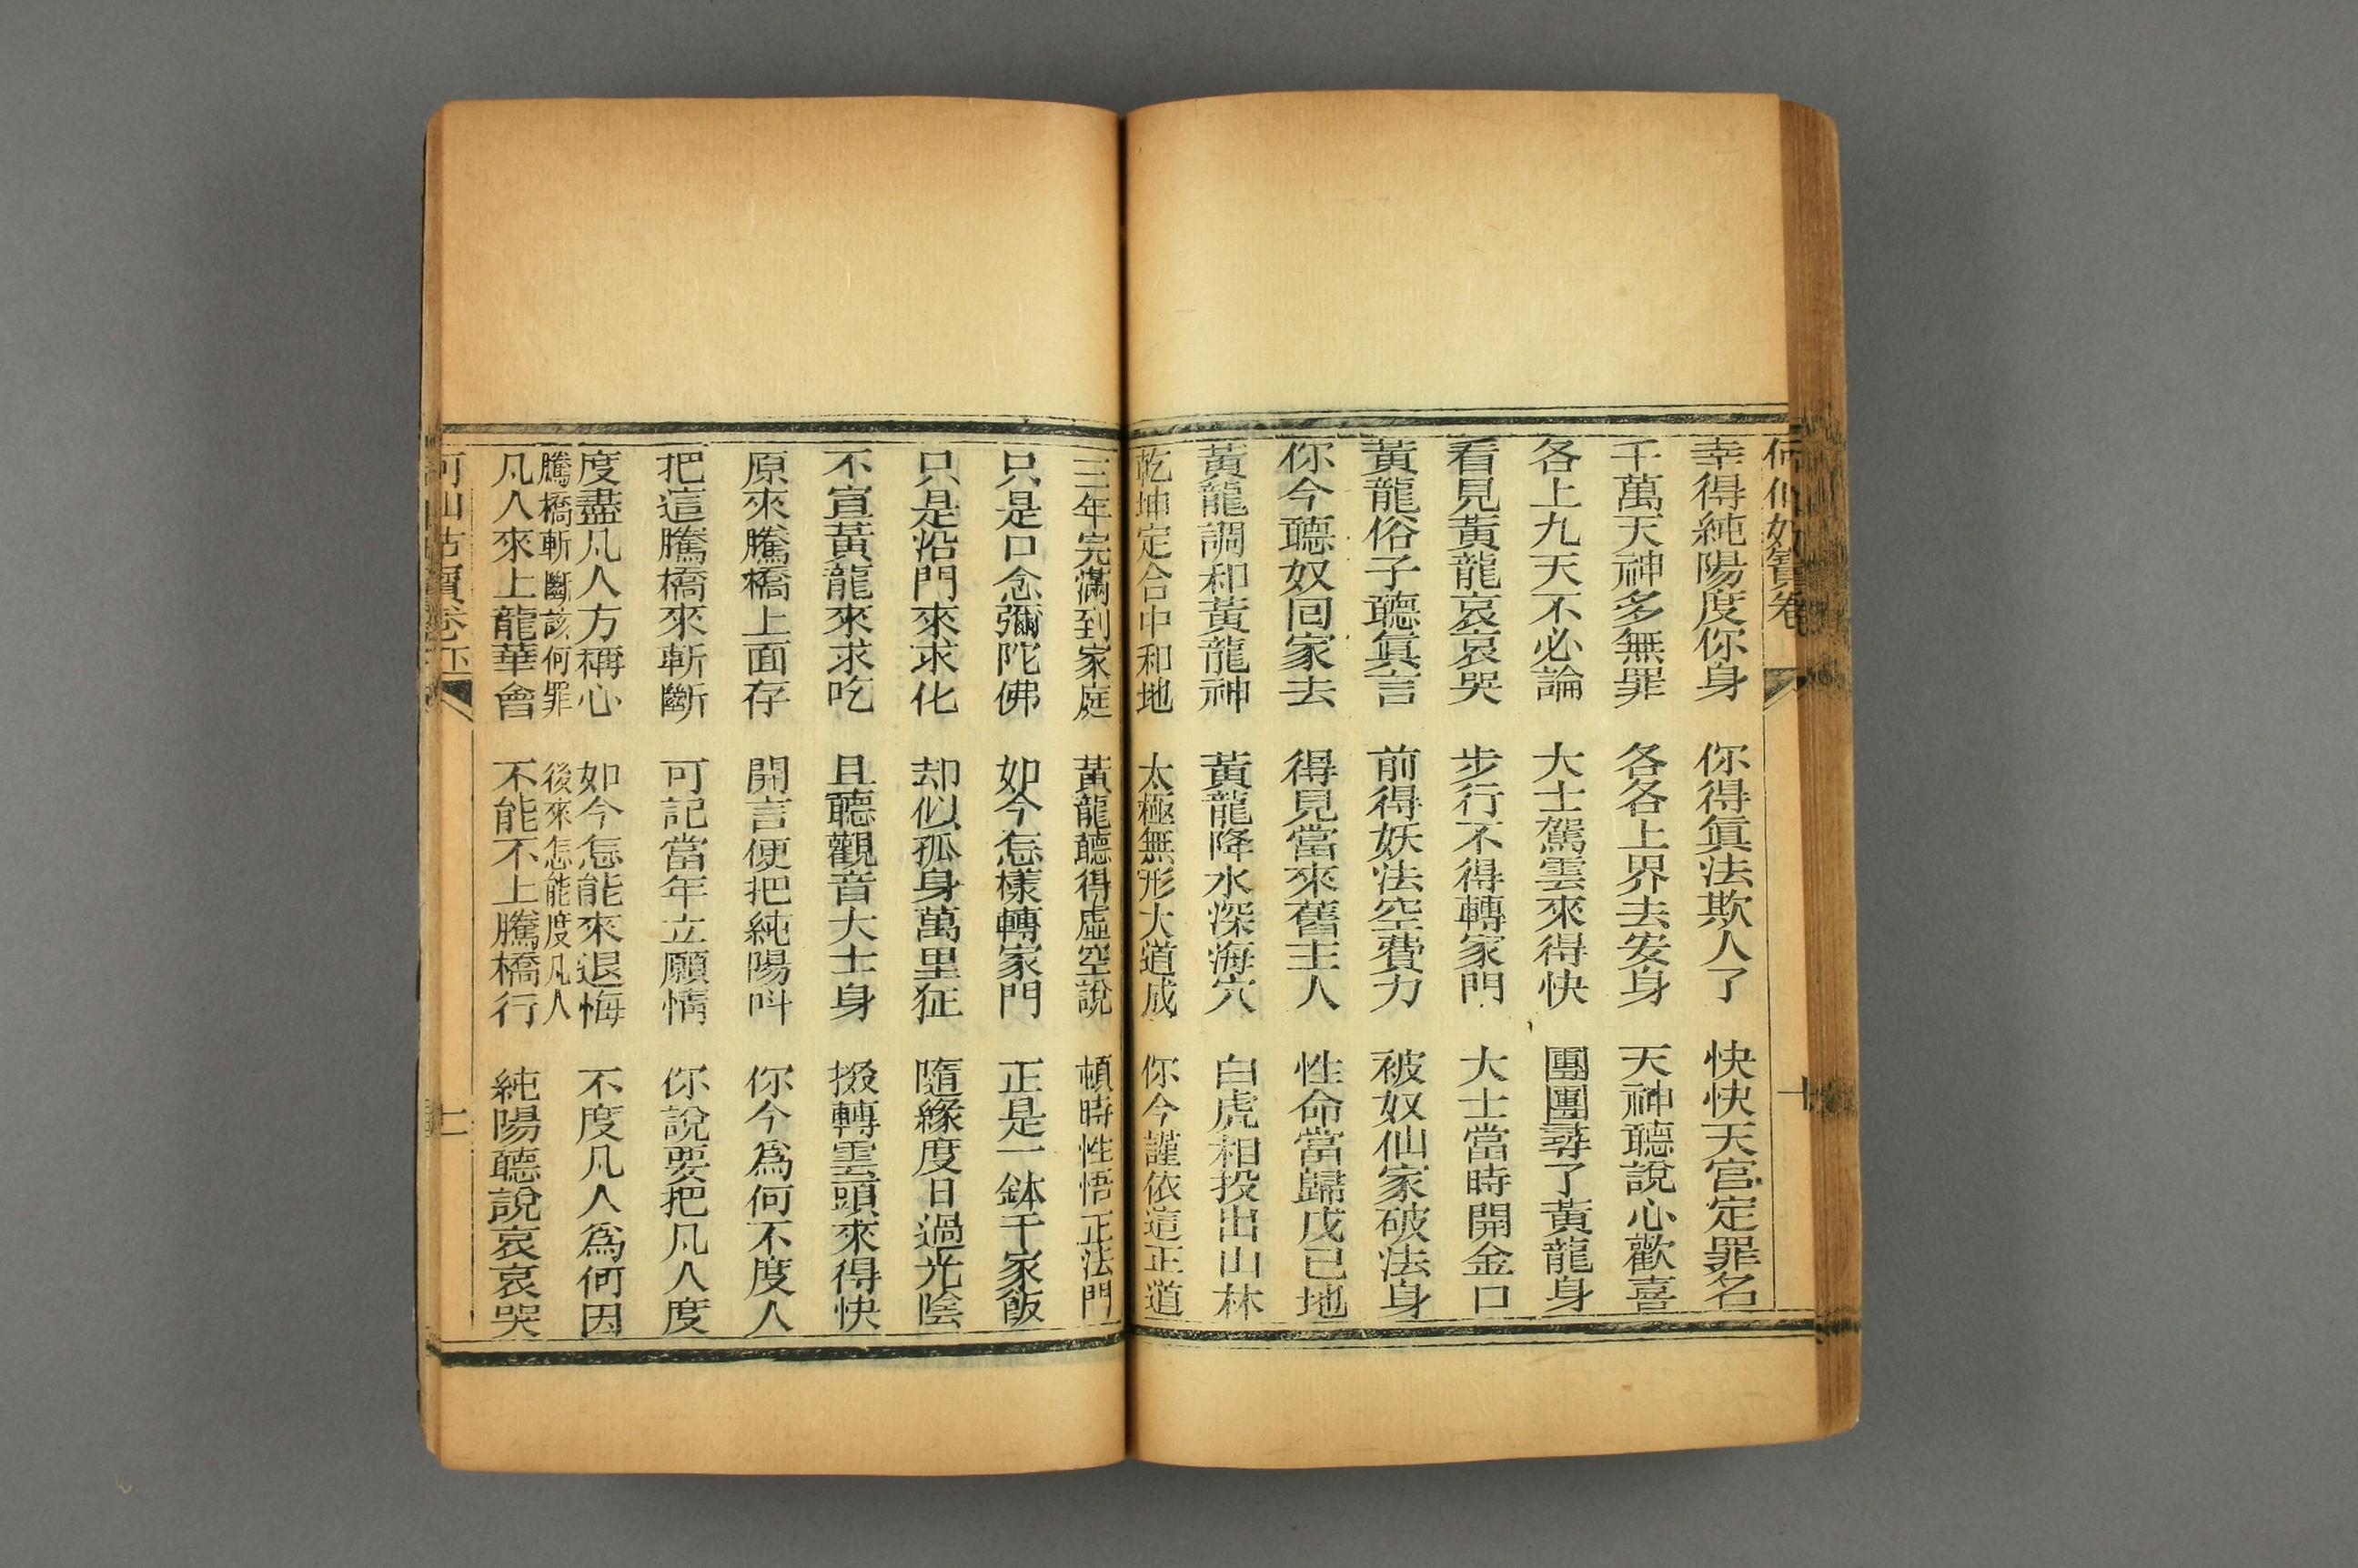 何仙姑寶卷 十
幸得純陽度你身 你得眞法欺人了 快快天宮定罪名
千萬天神多無罪 各各上界去安身 天神聽說心歡喜
各上九天不必論 大士駕雲來得快 團團尋了黃龍身
看見黃龍哀哀哭 步行不得轉家門 大士當時開金口
黃龍俗子聽眞言 前得妖法空費力 被奴仙家破法身
你今聽奴回家去 得見當來舊主人 性命當歸戊己地
黃龍調和黃龍神 黃龍降水深海穴 白虎相投出山林
乾坤定合中和地 太極無形大道成 你今謹依這正道
三年完滿到家庭 黃龍聽得虛空說 頓時性悟正法門
只是口念彌陀佛 如今怎樣轉家門 正是一鉢千家飯
只是沿門來求化 却似孤身萬里征 隨緣度日過光陰
不宣黃龍來求吃 且聽觀音大士身 撥轉雲頭來得快
原來騰橋上面存 開言便把純陽呌 你今爲何不度人
把這騰橋來斬斷 可記當年立願情 你說要把凡人度
度盡凡人方稱心 如今怎能來退悔 不度凡人爲何因
騰橋斬斷該何罪 後來怎能度凡人
凡人來上龍華會 不能不上騰橋行 純陽聽說哀哀哭